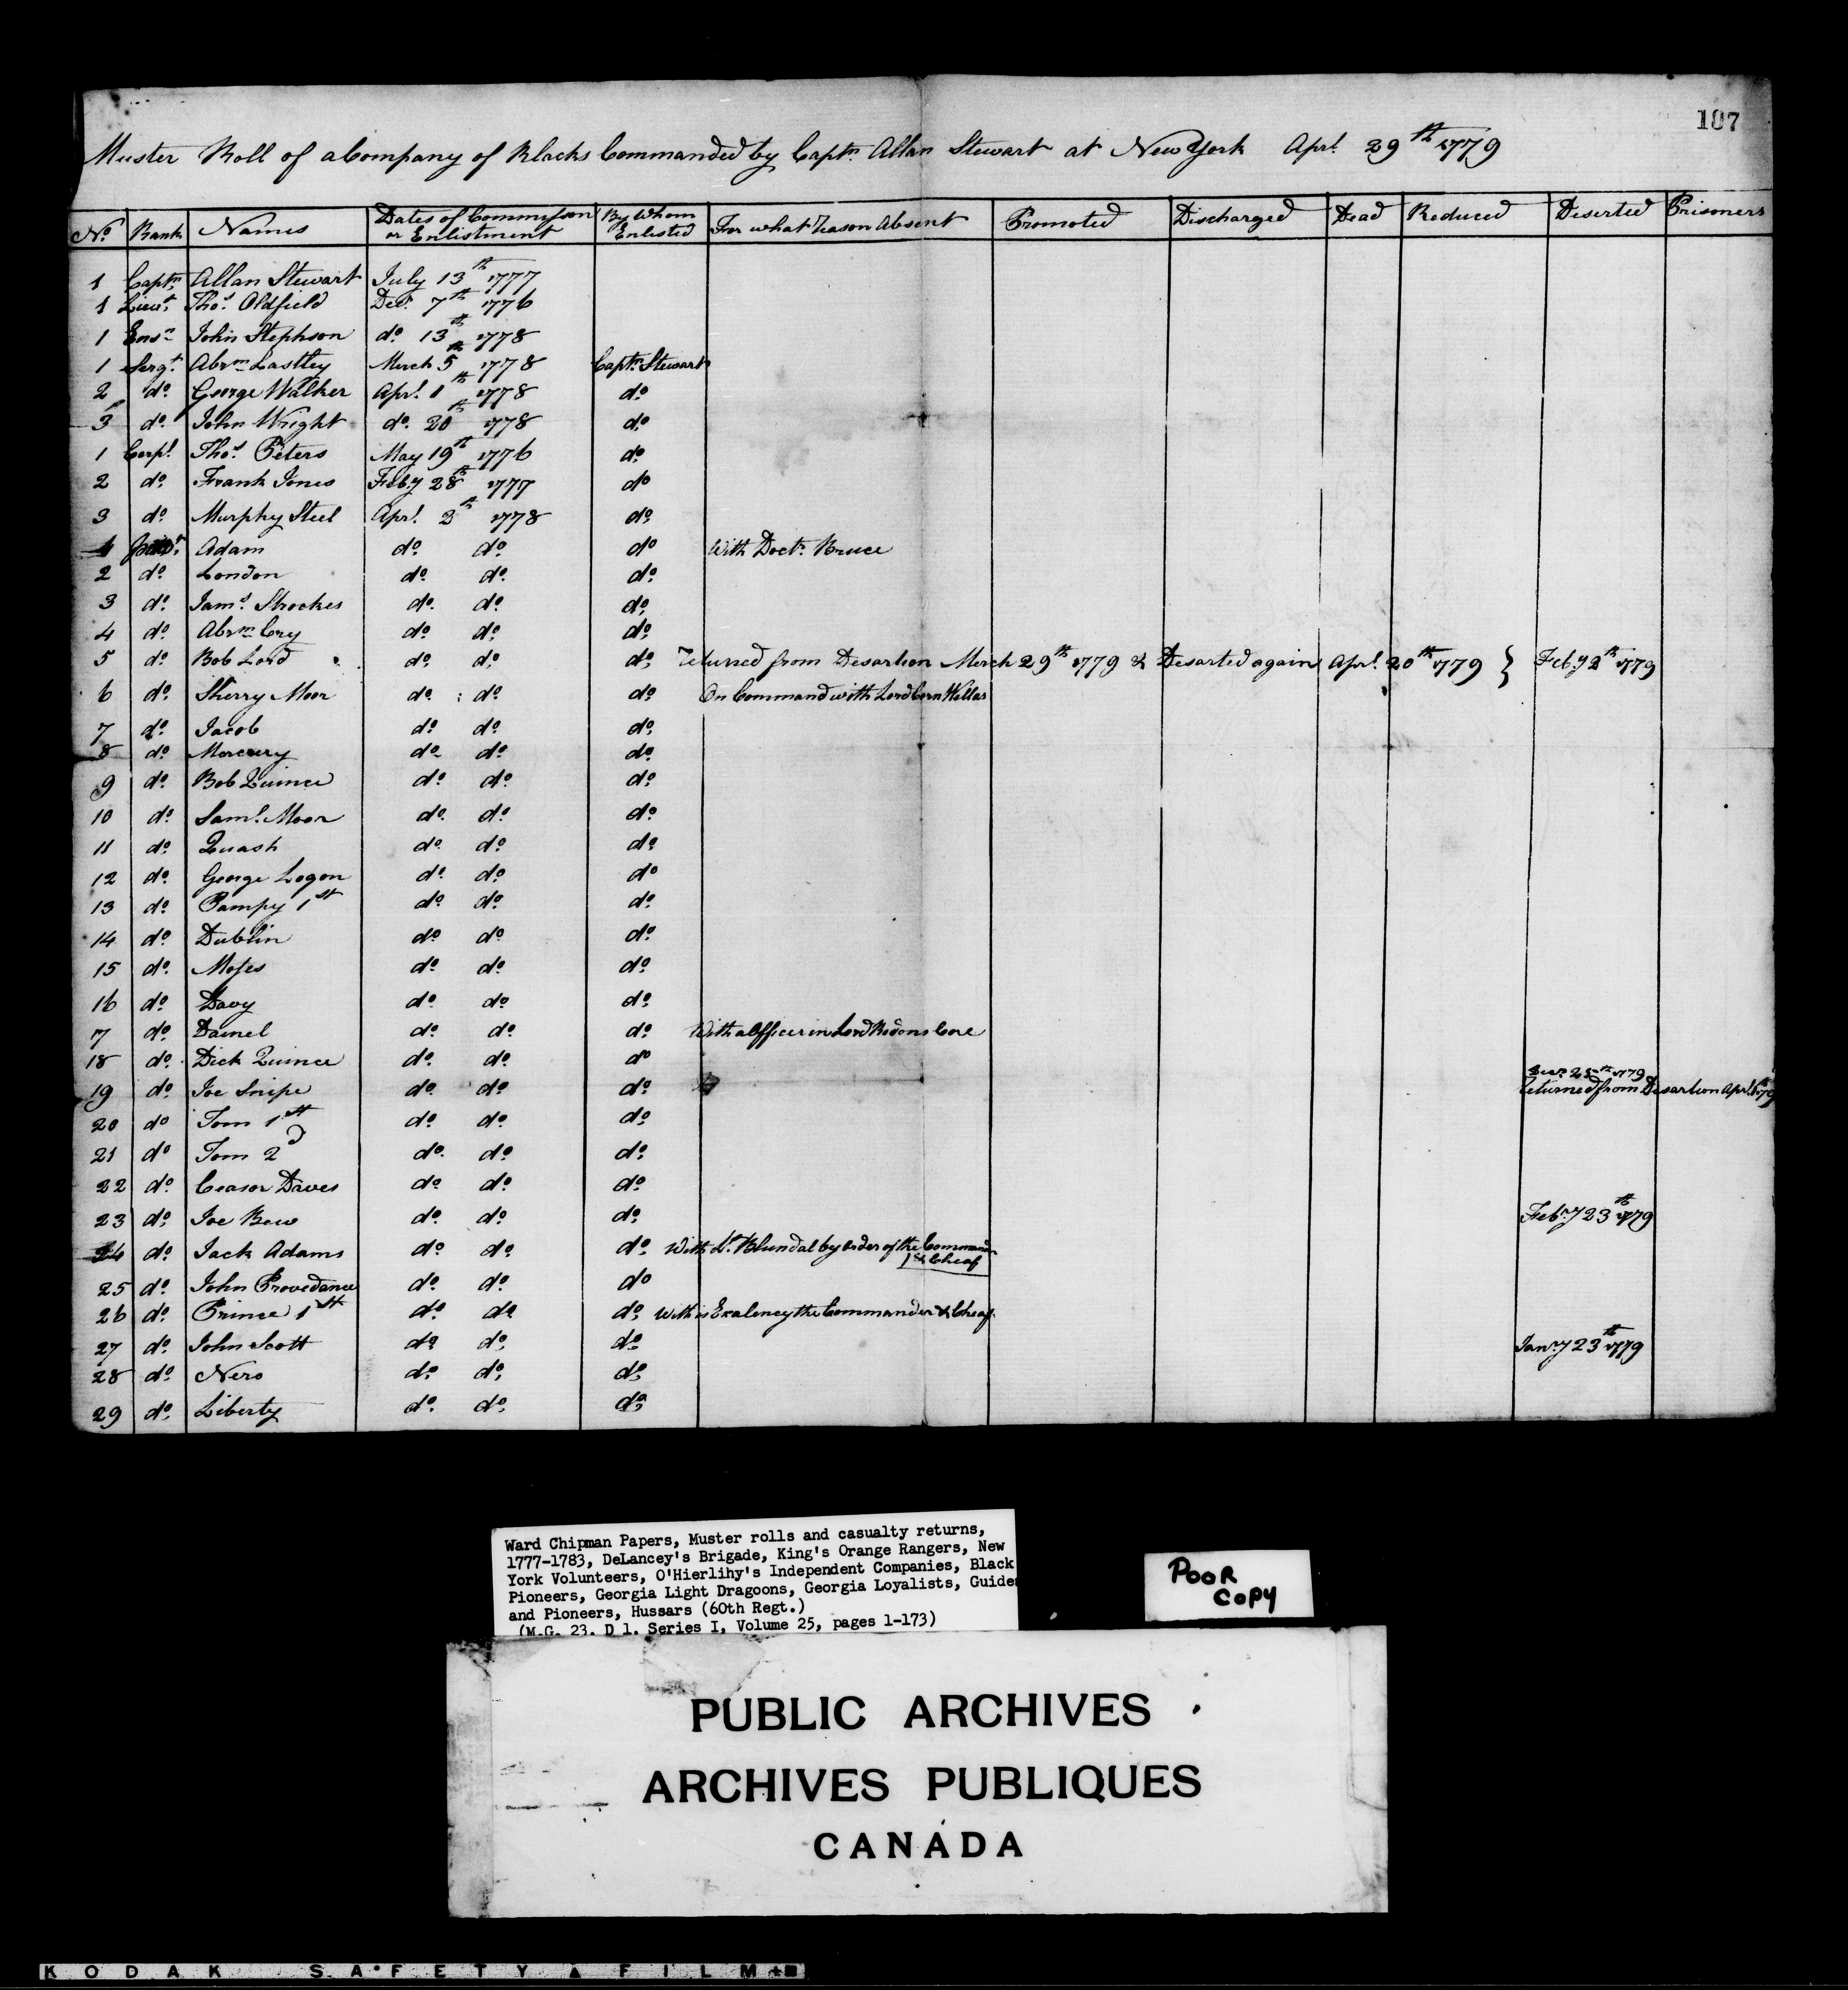 107
Muster Roll of a Company of Blacks Commanded by Captn Allan Stewart at New York Aprl 29th 1779
No. Rank Names Dates of Commission or Enlistment By Whom Enlisted For what Reason Absent Promoted Discharged Dead Reduced Deserted Prisoners
1 Captn Allan Stewart July 13th 1777
1 Lieut. Thos. Oldfield Decr. 7th 1776
1 Ensn John Stephson do. 13th 1778
1 Sergt. Abrm Lastley March 5th 1778 Captn Stewart
2 do. George Walker Aprl. 1th 1778 do.
3 do. John Wright do. 20th 1778 do.
1 Corpl. Thos. Peters May 19th 1776 do.
2 do. Frank Jones Feby 28th 1777 do
3 do. Murphy Steel Aprl. 2th 1778 do.
1 Adam do. do. do With Doctr. Bruce
2 do. London do. do. do.
3 do. Jams. Strookes do. do. do.
4 do. Abrm Cry do. do. do.
5 do. Bob Lord do. do. do. returned from Desartion March 29th 1779 & Desarted again Aprl. 20th 1779 } Feby 2th 1779
6 do. Sherry Moor do. do. do. On Command with Lord Corn Wallas
7 do. Jacob do. do. do.
8 do. Morcury do. do. do.
9 do. Bob Quince do. do. do.
10 do. Saml. Moor do. do. do.
11 do. Quash do. do. do.
12 do. George Logon do. do. do
13 do. Pampy 1st do. do. do.
14 do. Dublin do. do. do.
15 do. Moses do. do. do.
16 do. Davy do. do. do.
17 do. Dainel do. do. do. With a Officer in Lord Rodons Core
18 do. Dick Quince do. do. do
19 do. Joe Snipe do. do. do. 25th 1779
returned from Desartion Aprl 1779
20 do Tom 1st do. do. do.
21 do Tom 2d do. do. do.
22 do. Ceasor Daves do. do. do.
23 do. Joe Bew do. do. do. Feby 23th 1779
24 do. Jack Adams do. do. do. With Lt. Blundal by order of the Commander & Cheaf
25 do. John Provedance do. do. do
26 do. Prince 1st do. do. do. With is Exalency the Commander & Cheaf.
27 do. John Scott do. do. do. Jany 23th 1779
28 do. Nero do. do. do.
29 do. Liberty do. do. do.
Ward Chipman Papers, Muster rolls and casualty returns,
1777-1783, DeLancey's Brigade, King's Orange Rangers, New
York Volunteers, O'Hierlihy's Independent Companies, Black
Pioneers, Georgia Light Dragoons, Georgia Loyalists, Guides
and Pioneers, Hussars (60th Regt.)
(M.G. 23. D 1. Series I, Volume 25, pages 1-173)
POOR
COPY
PUBLIC ARCHIVES
ARCHIVES PUBLIQUES
CANADA
KODAK SAFETY FILM